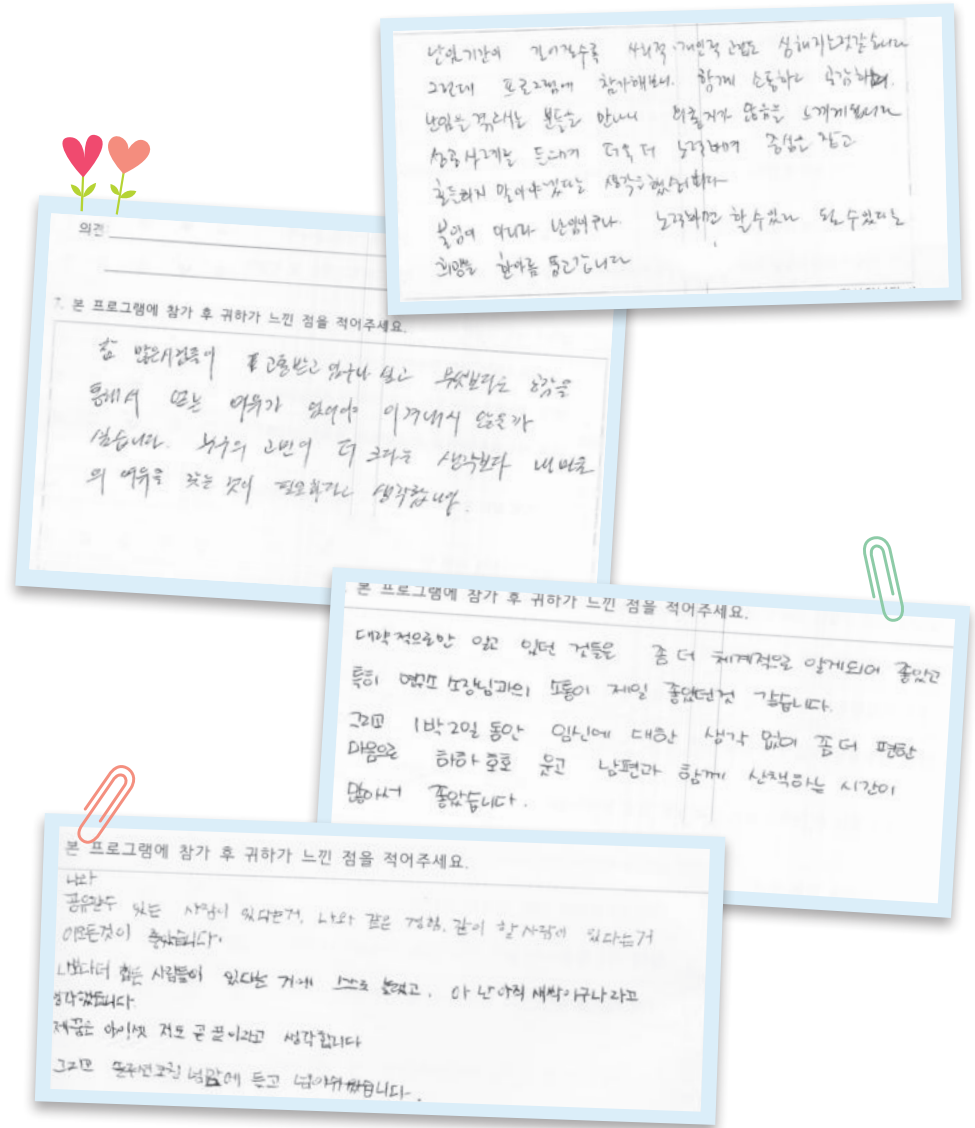 난임기간이 길어질수록 사회적·개인적 고립도 심해지는것같습니다
그런데 프로그램에 참가해보니. 함께 소통하고 공감하며.
난임을 겪으시는 분들을 만나니 외롭지가 않음을 느끼게됩니다
성공사례를 들으며 더욱 더 노력하며 중심을 잡고
흔들리지 말아야겠다는 생각을 했습니다
불임이 아니라 난임이구나. 노력하면 할수있다 될수있다는
희망을 한아름 품고갑니다
의견
7. 본 프로그램에 참가 후 귀하가 느낀 점을 적어주세요.
참 많은사람들이 고통받고 있구나 싶고 무엇보다는
통해서 또는 여유가 있어야 이겨내지 않을까
싶습니다. 누구의 고민이 더 크다는 생각보다 내 마음
의 여유을 찾는 것이 필요하다고 생각합니다.
본 프로그램에 참가 후 귀하가 느낀 점을 적어주세요.
대략적으로만 알고 있던 것들은 좀 더 체계적으로 알게되어 좋았고
특히 소장님과의 소통이 제일 좋았던것 같습니다.
그리고 1박2일 동안 임신에 대한 생각 없이 좀 더 편한
마음으로 하하 호호 웃고 남편과 함께 산책하는 시간이
많아서 좋았습니다.
본 프로그램에 참가 후 귀하가 느낀 점을 적어주세요.
나와
공유할수 있는 사람이 있다는거, 나와 같은 경험, 같이 할 사람이 있다는거
이모든것이 좋았습니다.
나보다더 힘든 사람들이 있다는 거에 스스로 놀랬고, 아 난 아직 새싹이구나 라고
생각했습니다.
제꿈은 아이셋 저도 곧 끝이라고 생각합니다
그리고 듣고